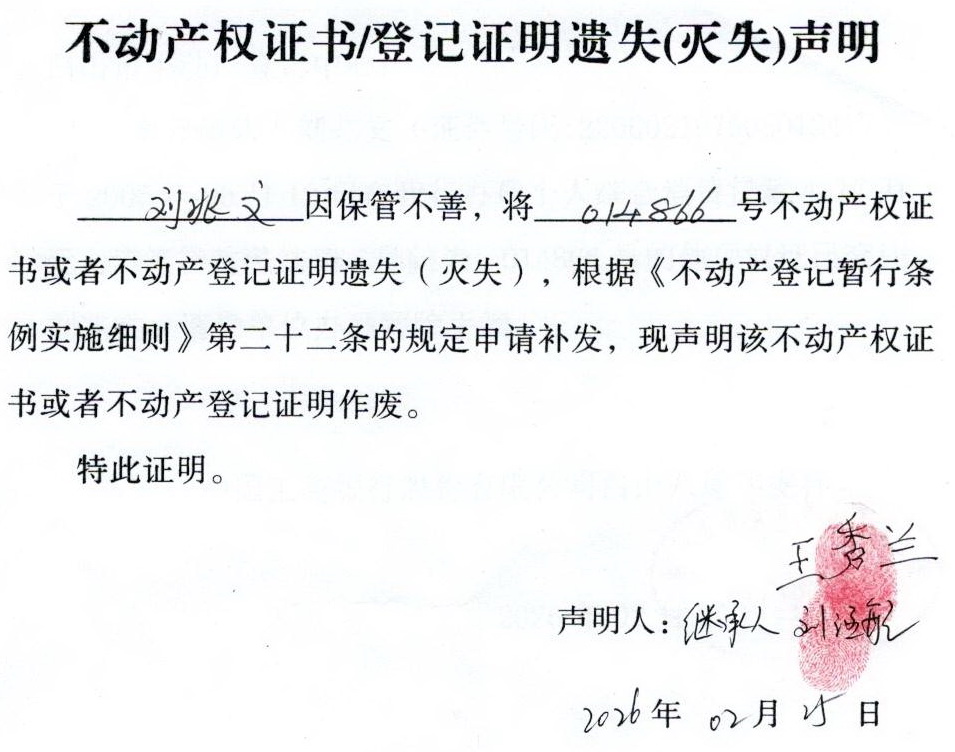 不动产权证书/登记证明遗失(灭失)声明
刘兆文因保管不善，将 014866 号不动产权证
书或者不动产登记证明遗失（灭失），根据《不动产登记暂行条
例实施细则》第二十二条的规定申请补发，现声明该不动产权证
书或者不动产登记证明作废。
特此证明。
王秀兰
声明人：继承人 刘
2026年 02月 25日